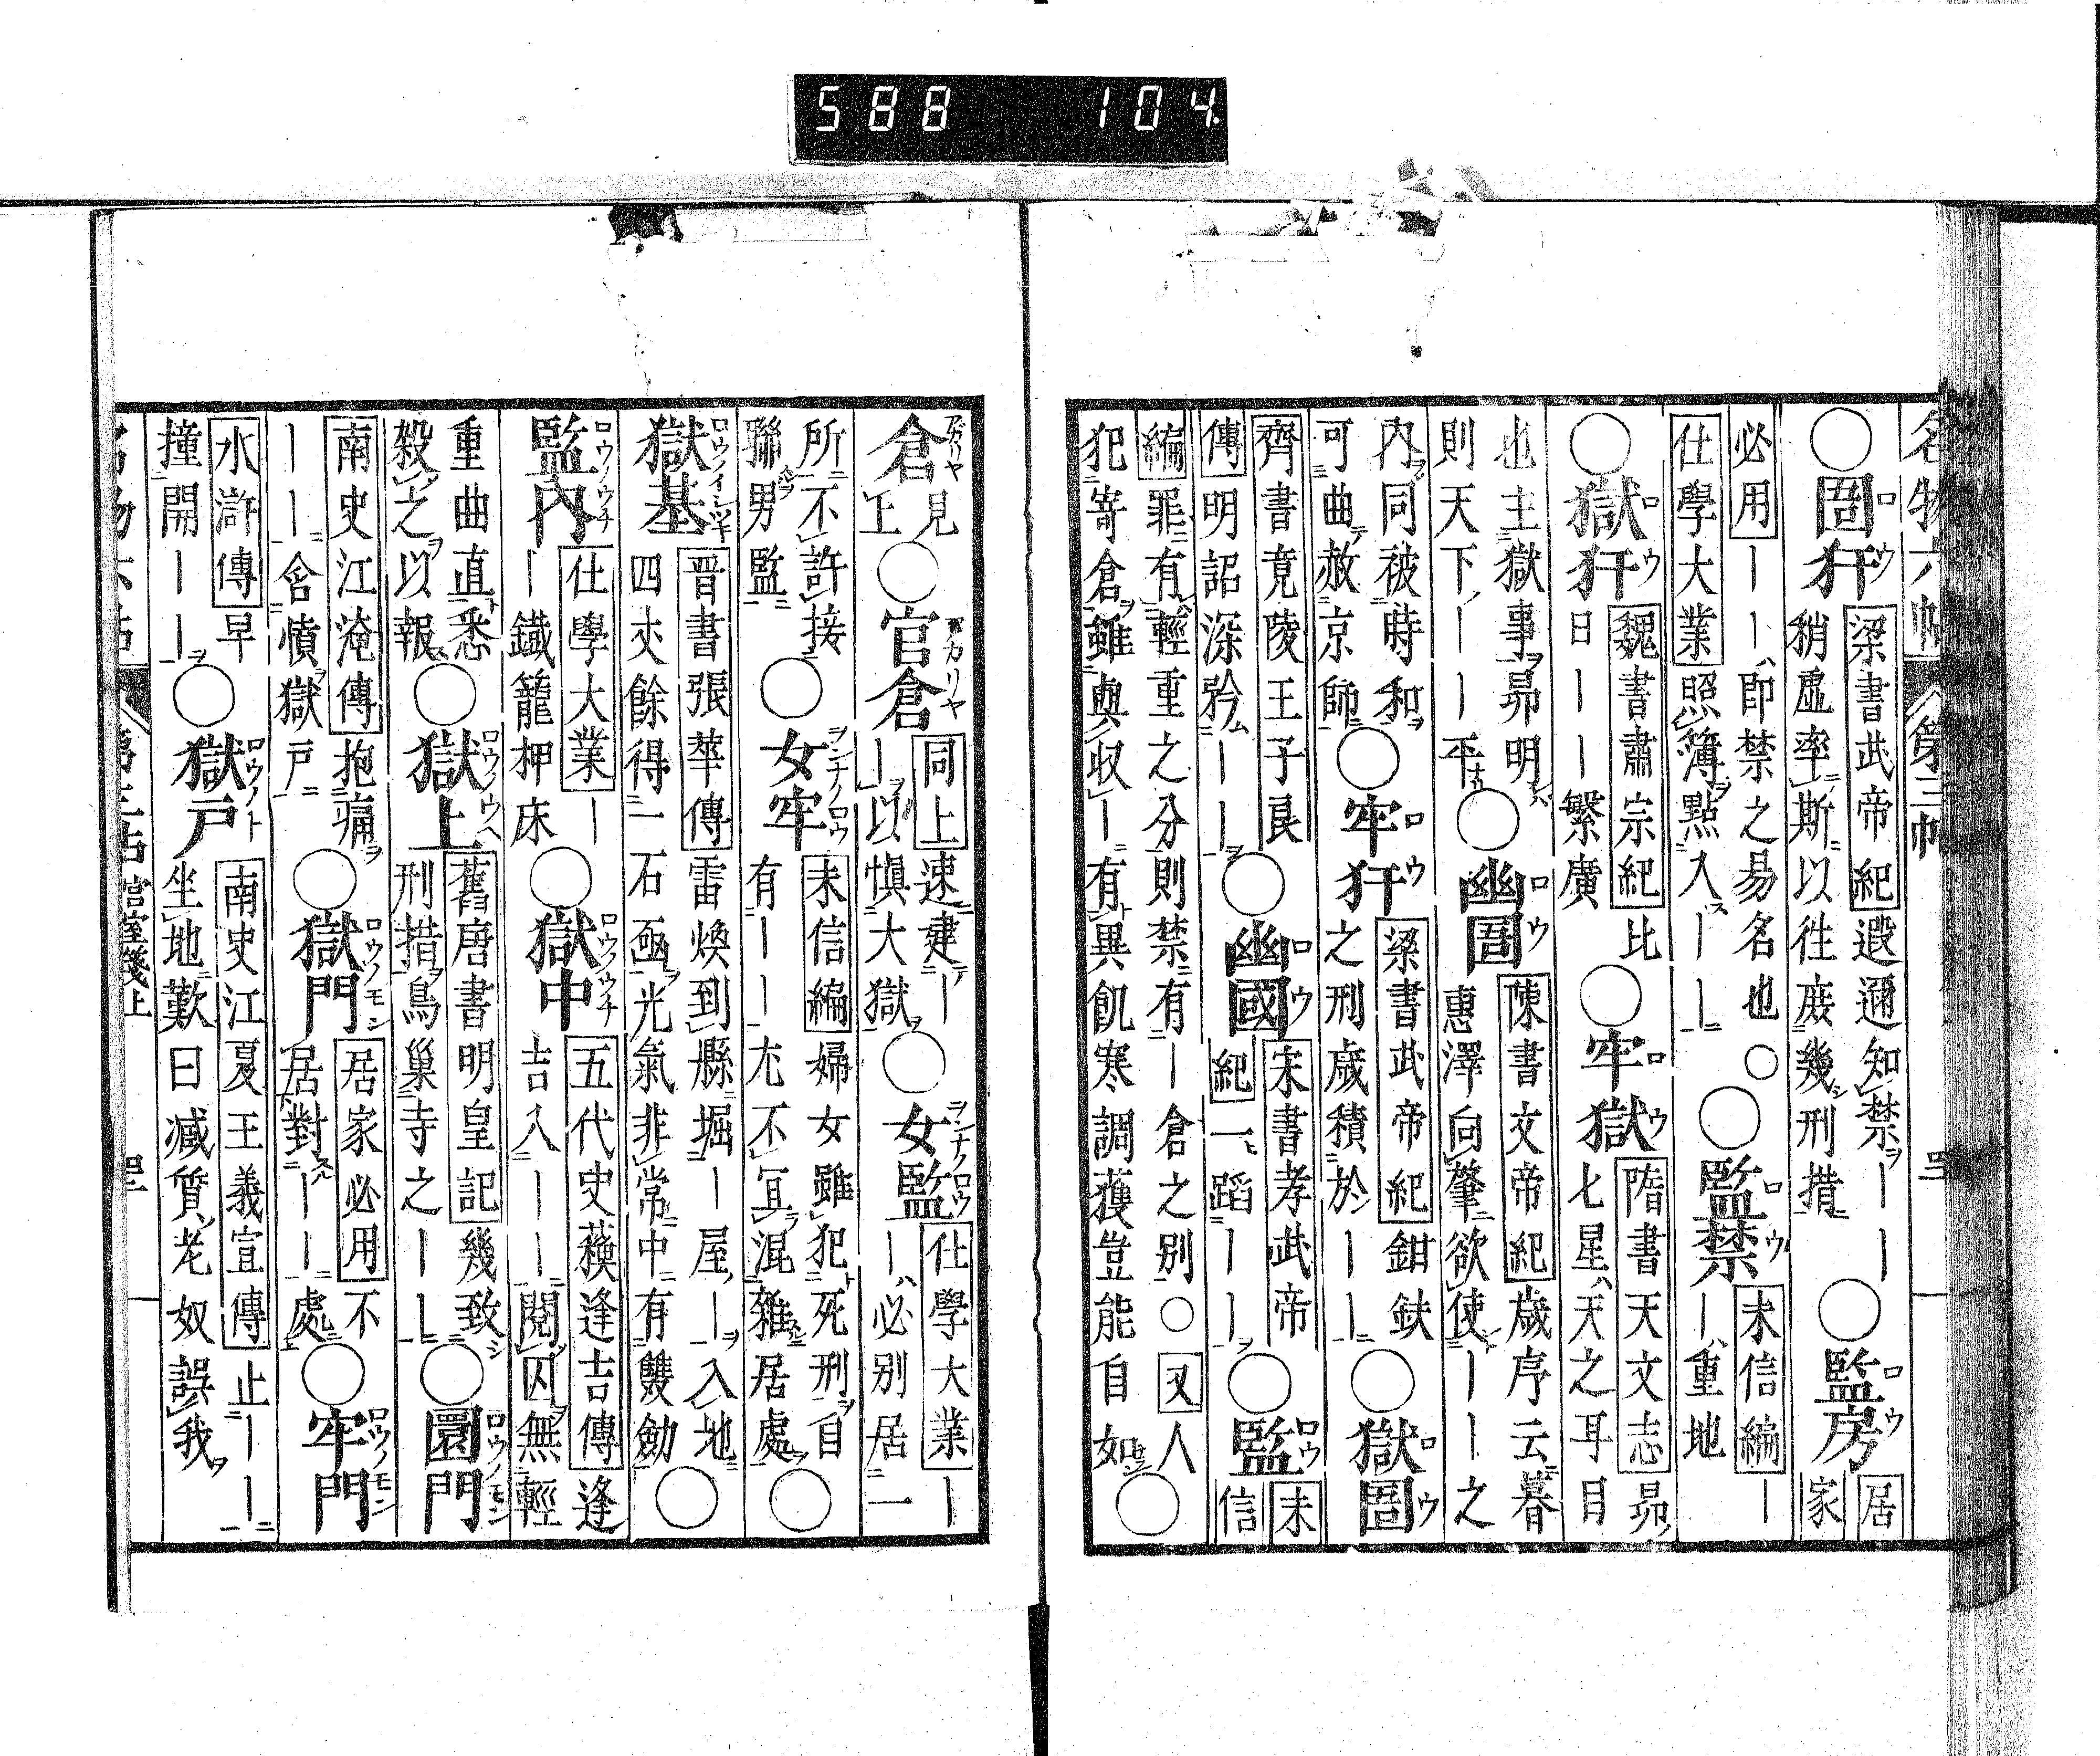 588 104.
名物六帖 第三帖
○圄犴 梁書武帝紀遐邇知禁｜｜稍虚率斯以往庶幾刑措○監房 居家
必用｜｜即禁之易名也○仕學大業照簿點入｜｜○監禁 未信編｜｜重地
○獄犴 魏書肅宗紀比日｜｜繁廣○牢獄 隋書天文志昴七星天之耳目
也主獄事昴明則天下｜｜平○幽圄 陳書文帝紀歳序云暮惠澤向肇欲使｜｜之
内同被時和可曲赦京師○牢犴 梁書武帝紀鉗釱之刑歳積於｜｜○獄圄
齊書竟陵王子良傳明詔深矜｜｜○幽國 宋書孝武帝紀一蹈｜｜○監 未信
編罪有輕重之分則禁有｜倉之別○又人犯寄倉雖與収｜有異飢寒調獲豈能自如○
倉 見上○官倉 同上速建｜｜以愼大獄○女監 仕學大業｜｜必別居一
所不許接聯男監○女牢 未信編婦女雖犯死刑自有｜｜尤不冝混雜居處○
獄基 晋書張華傳雷煥到縣堀｜屋｜入地四丈餘得一石凾光氣非常中有雙劔○
監内 仕學大業｜｜鐡籠押床○獄中 五代史蘓逢吉傳逢吉入｜｜閲囚無輕
重曲直悉殺之以報○獄上 舊唐書明皇記幾致刑措烏巢寺之｜｜○圜門
南史江淹傳抱痛｜｜含憤獄戸○獄門 居家必用不居對｜｜處○牢門
水滸傳早撞開｜｜○獄戸 南史江夏王義宣傳止｜｜坐地歎曰减質老奴誤我